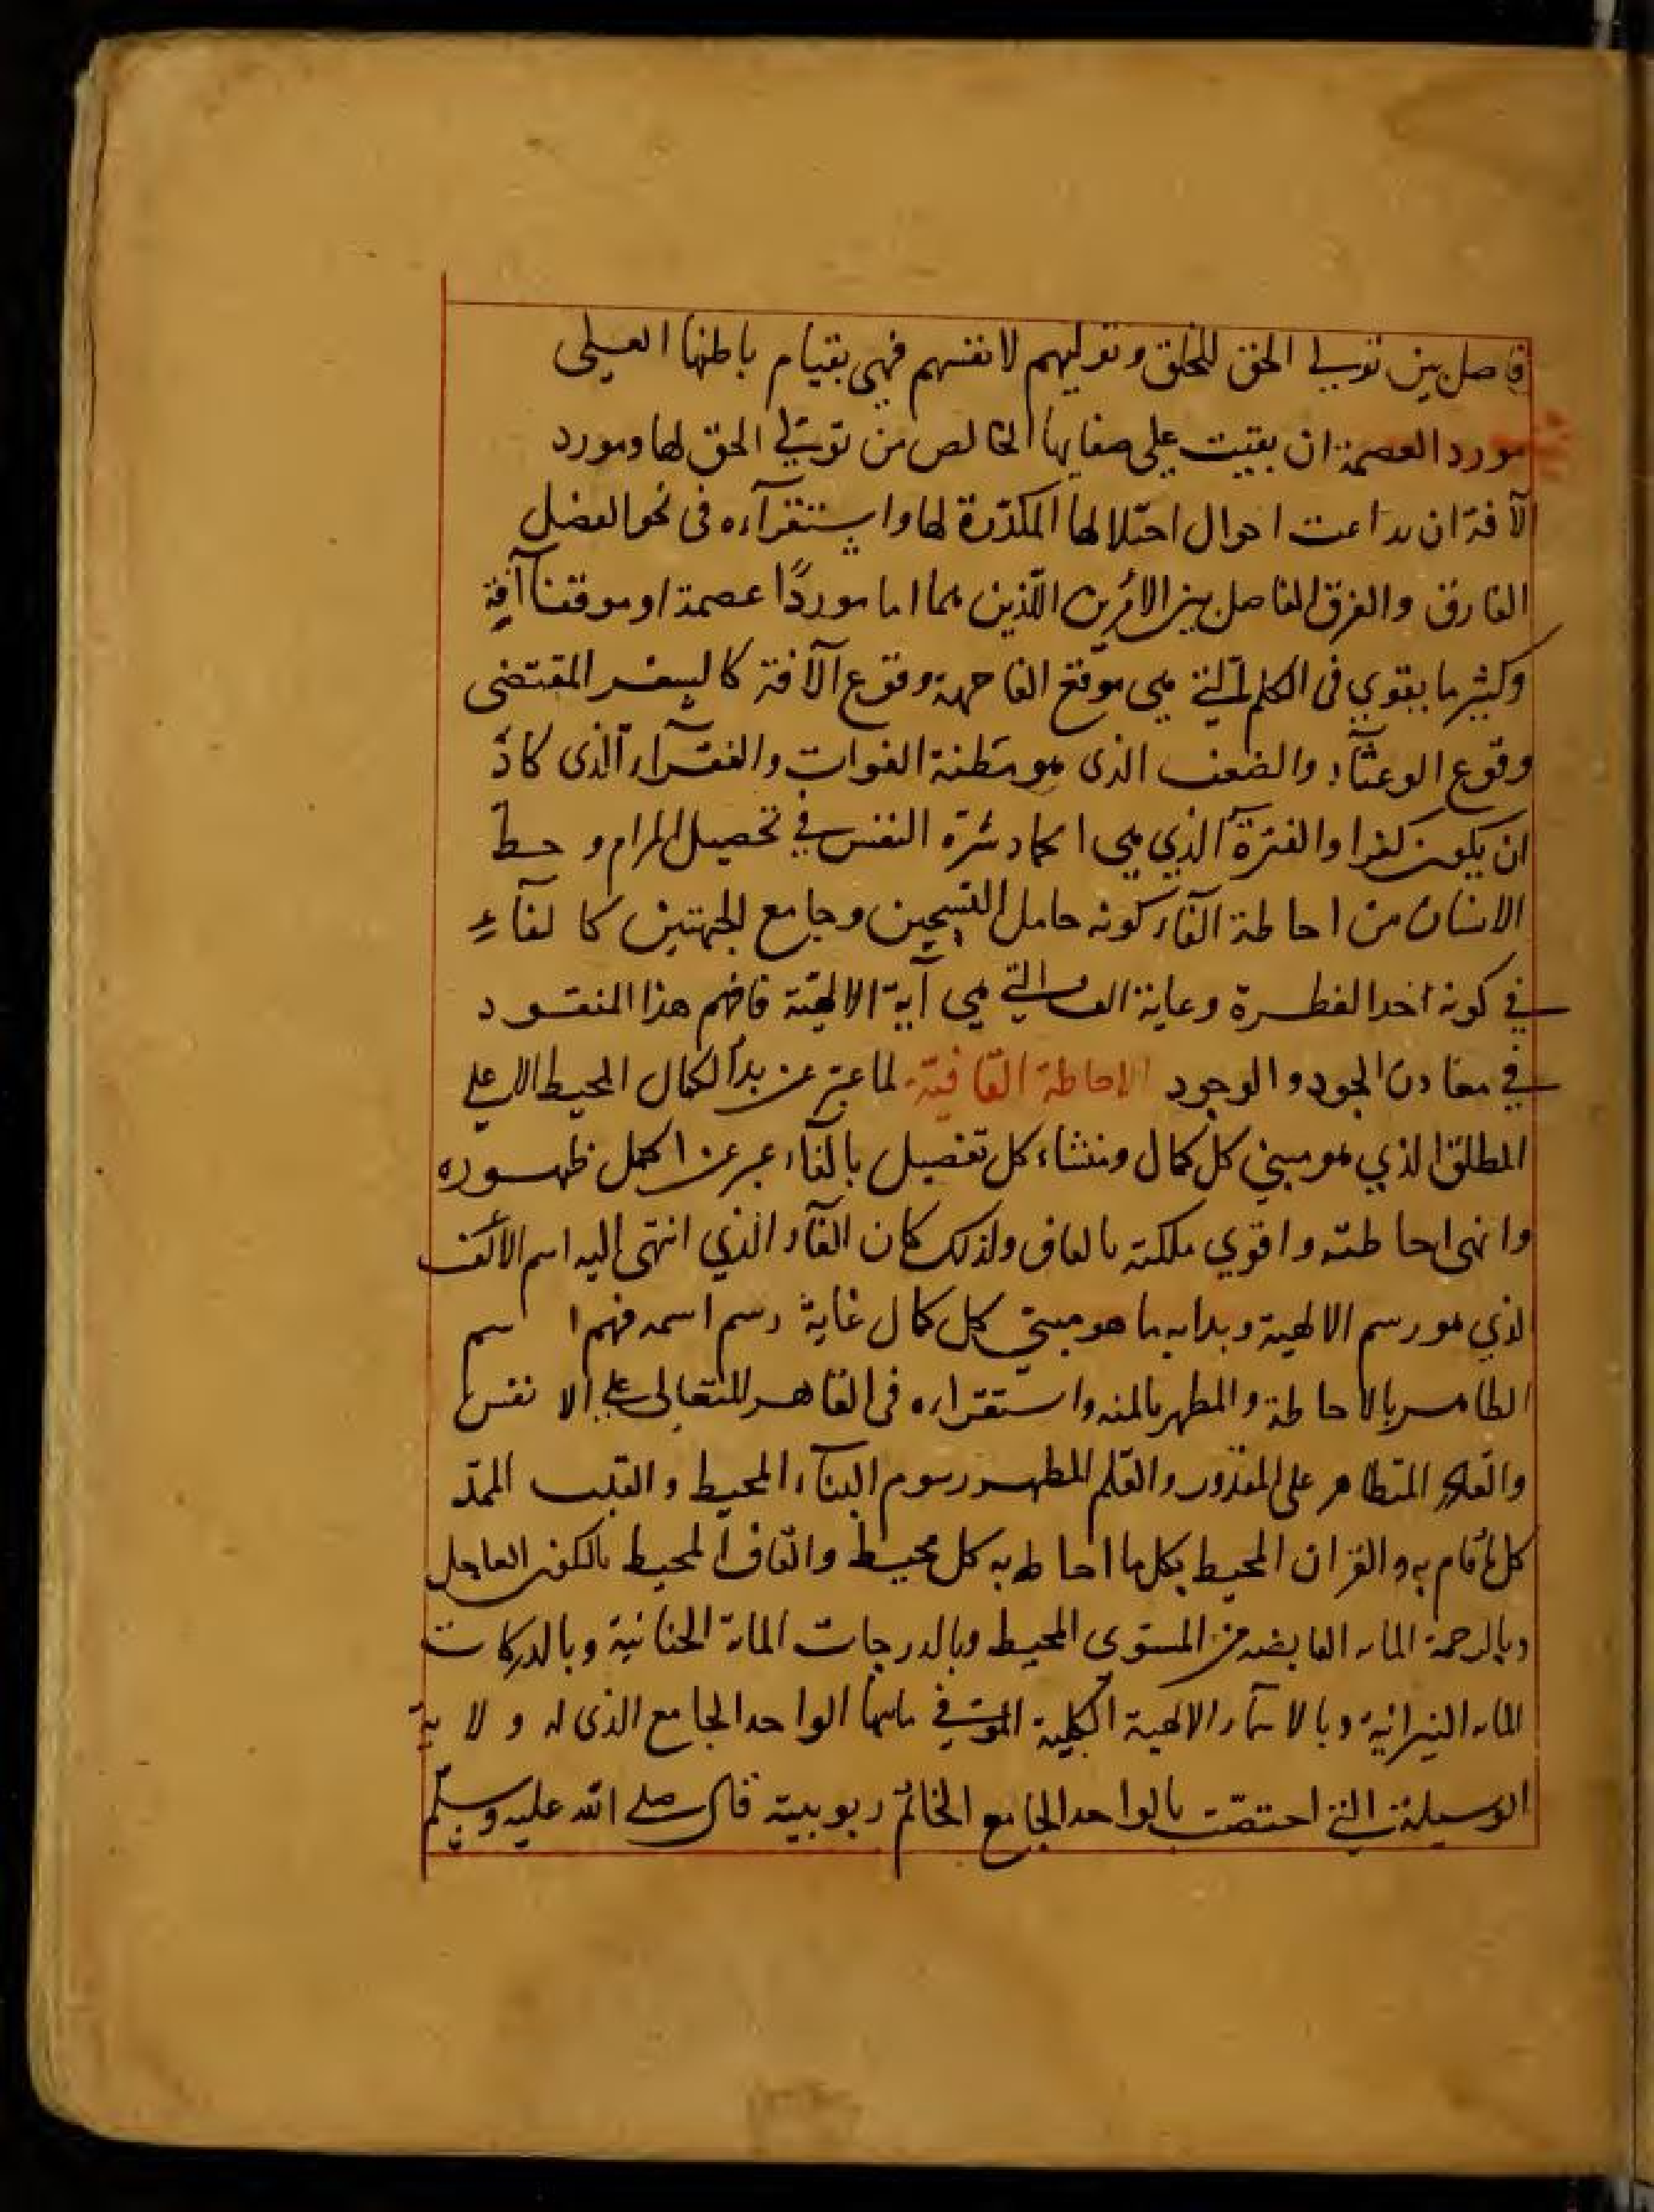 فاصل بين تولي الحق للخلق وتوليهم لانفسهم فهي بقيام باطنها العلى
مورد العصمة ان بقيت على صفايها الخالص من تولي الحق لها ومورد
الآفة ان احوال اختلالها المكدرة لها واستقرآءه في نحو الفضل
الفارق والفرق الفاصل بين الامرين اللذين هما اما موردًا عصمة او موقفا آفة
وكثير ما يقوى في الكلم التي هي موقع الفا جهة وقوع الآفة كالسفر المقتضى
وقوع الوعثآء والضعف الذى هو مظنة الفوات والفقرآء الذى كاد
ان يكون كفرا والفترة الذي هي اخماد شرة النفس في تحصيل المرام و حط
الانسان من احاطة الفآء كونه حامل القسمين وجامع الجهتين كالفآء
في كونه اخذ الفطرة وغاية الف التي هي آية الالهية فافهم هذا المنقود
في معادن الجود والوجود الاحاطة القافية لما عبر عن بدأ الكمال المحيط الاعلى
المطلق الذي هو مبنى كل كمال ومنشاء كل تفصيل بالفآء عبر عن اكمل ظهوره
وانهى احاطته واقوى ملكته بالقاف ولذلك كان الفآء الذي انتهى اليه اسم الالف
لذي هو رسم الالهية وبدايه ما هو مبنى كل كمال غاية رسم اسمه فهم اسم
الظاهر بالاحاطة والمظهر بالمنه واستقراره في القاهر المتعالى على الانفس
والقادر المتظاهر على المقدور والقلم المظهر رسوم البنآء المحيط والقلب الممد
كل ما قام به والقران المحيط بكل ما احاط به كل محيط والقاف المحيط بالكون العاجل
وبالرحمة الفايضه من المستوى المحيط وبالدرجات الجنانية وبالدركات
النيرانية وبالاسمآء الالهية الكلية الواحد الجامع الذى له ولاية
الوسيلة التي اختصت بالواحد الجامع الخاتم ربوبية قال صلى الله عليه وسلم